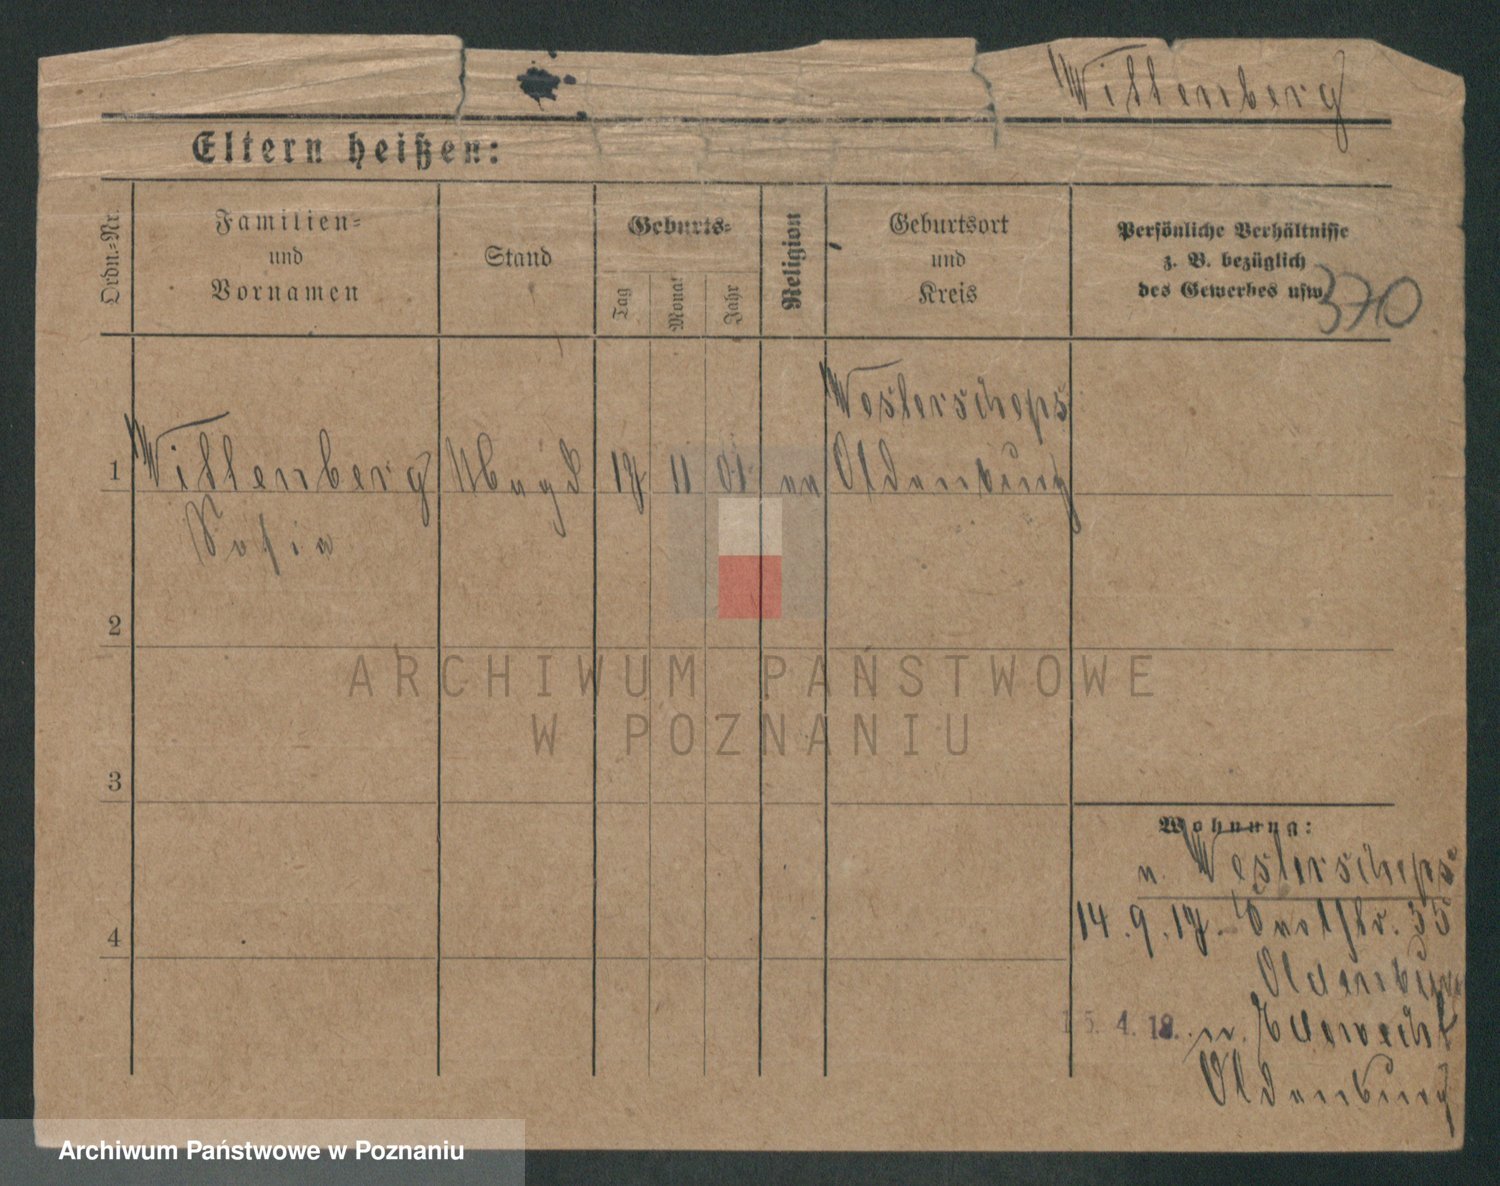 Wittenberg
Eltern heißen:
Ordn.=Nr.
Familien=
und
Vornamen
Stand
Geburts=
Tag
Monat
Jahr
Religion
Geburtsort
und
Kreis
Persönliche Verhältnisse
z. B. bezüglich
des Gewerbes usw.
370
1
Wittenberg
Sofie
Magd
17
11
01
Westerscheps
Oldenburg
2
3
4
Wohnung:
n. Westerscheps
14. 9. 17. 35
Oldenburg
15. 4. 18. n.
Oldenburg
ARCHIWUM PAŃSTWOWE
W POZNANIU
Archiwum Państwowe w Poznaniu